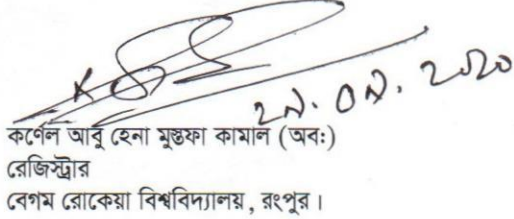 ২৯.০৯.২০২০
কর্ণেল আবু হেনা মুস্তফা কামাল (অব:)
রেজিস্ট্রার
বেগম রোকেয়া বিশ্ববিদ্যালয়, রংপুর।